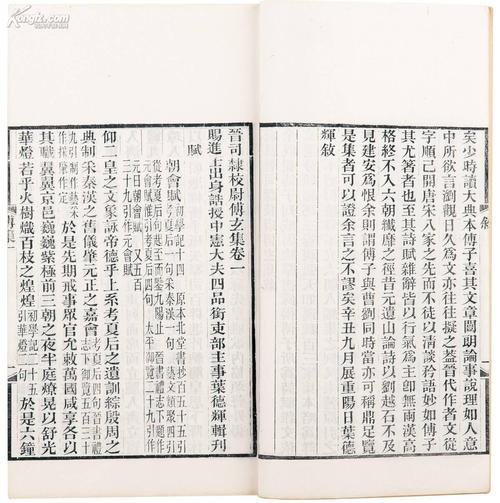 Kongfz.com
矣少時讀大典本傅子喜其文章闡明論事說理如人意
中所欲言劉觀日久為文亦往往擬之蓋晉代作者文從
字順己開唐宋八家之以清談矜語妙如傅子
其尤著者也至其詩賦雜辭皆以行氣為主卽無兩漢高
格終不入六朝纖靡之徑昔元遺山論詩以劉越石不及
見建安為恨余則謂傅子與曹劉同時當亦可鼎足觀
是集者可以證余言之不謬矣辛丑九月展重陽日葉德
輝敘
晉司隸校尉傅玄集卷一
賜進士出身誥授中憲大夫四品銜吏部主事葉德輝輯刊
賦
朝會賦
初學記十四 原本北堂書抄百五十五引
考夏后句采秦漢一句 藝文類聚四引
元會賦惟引考夏后四句 晉書禮志下題作
元日朝會賦 又五百
三十九引作元會賦 太平御覽二十九引
仰二皇之文象詠帝德乎上系考夏后之遺訓綜殷周之
典制采秦漢之舊儀肇元正之嘉會
考夏后四句晉書禮
志下御覽五百三十
九引制作藝采
作採肇作定
於是先期戒事眾官允敕萬國咸享各以
其職翼翼京邑巍巍紫極前三朝之夜半庭燎晃以舒光
華燈若乎火樹熾百枝之煌煌
初學記二十五
引華燈二句
於是六鐘